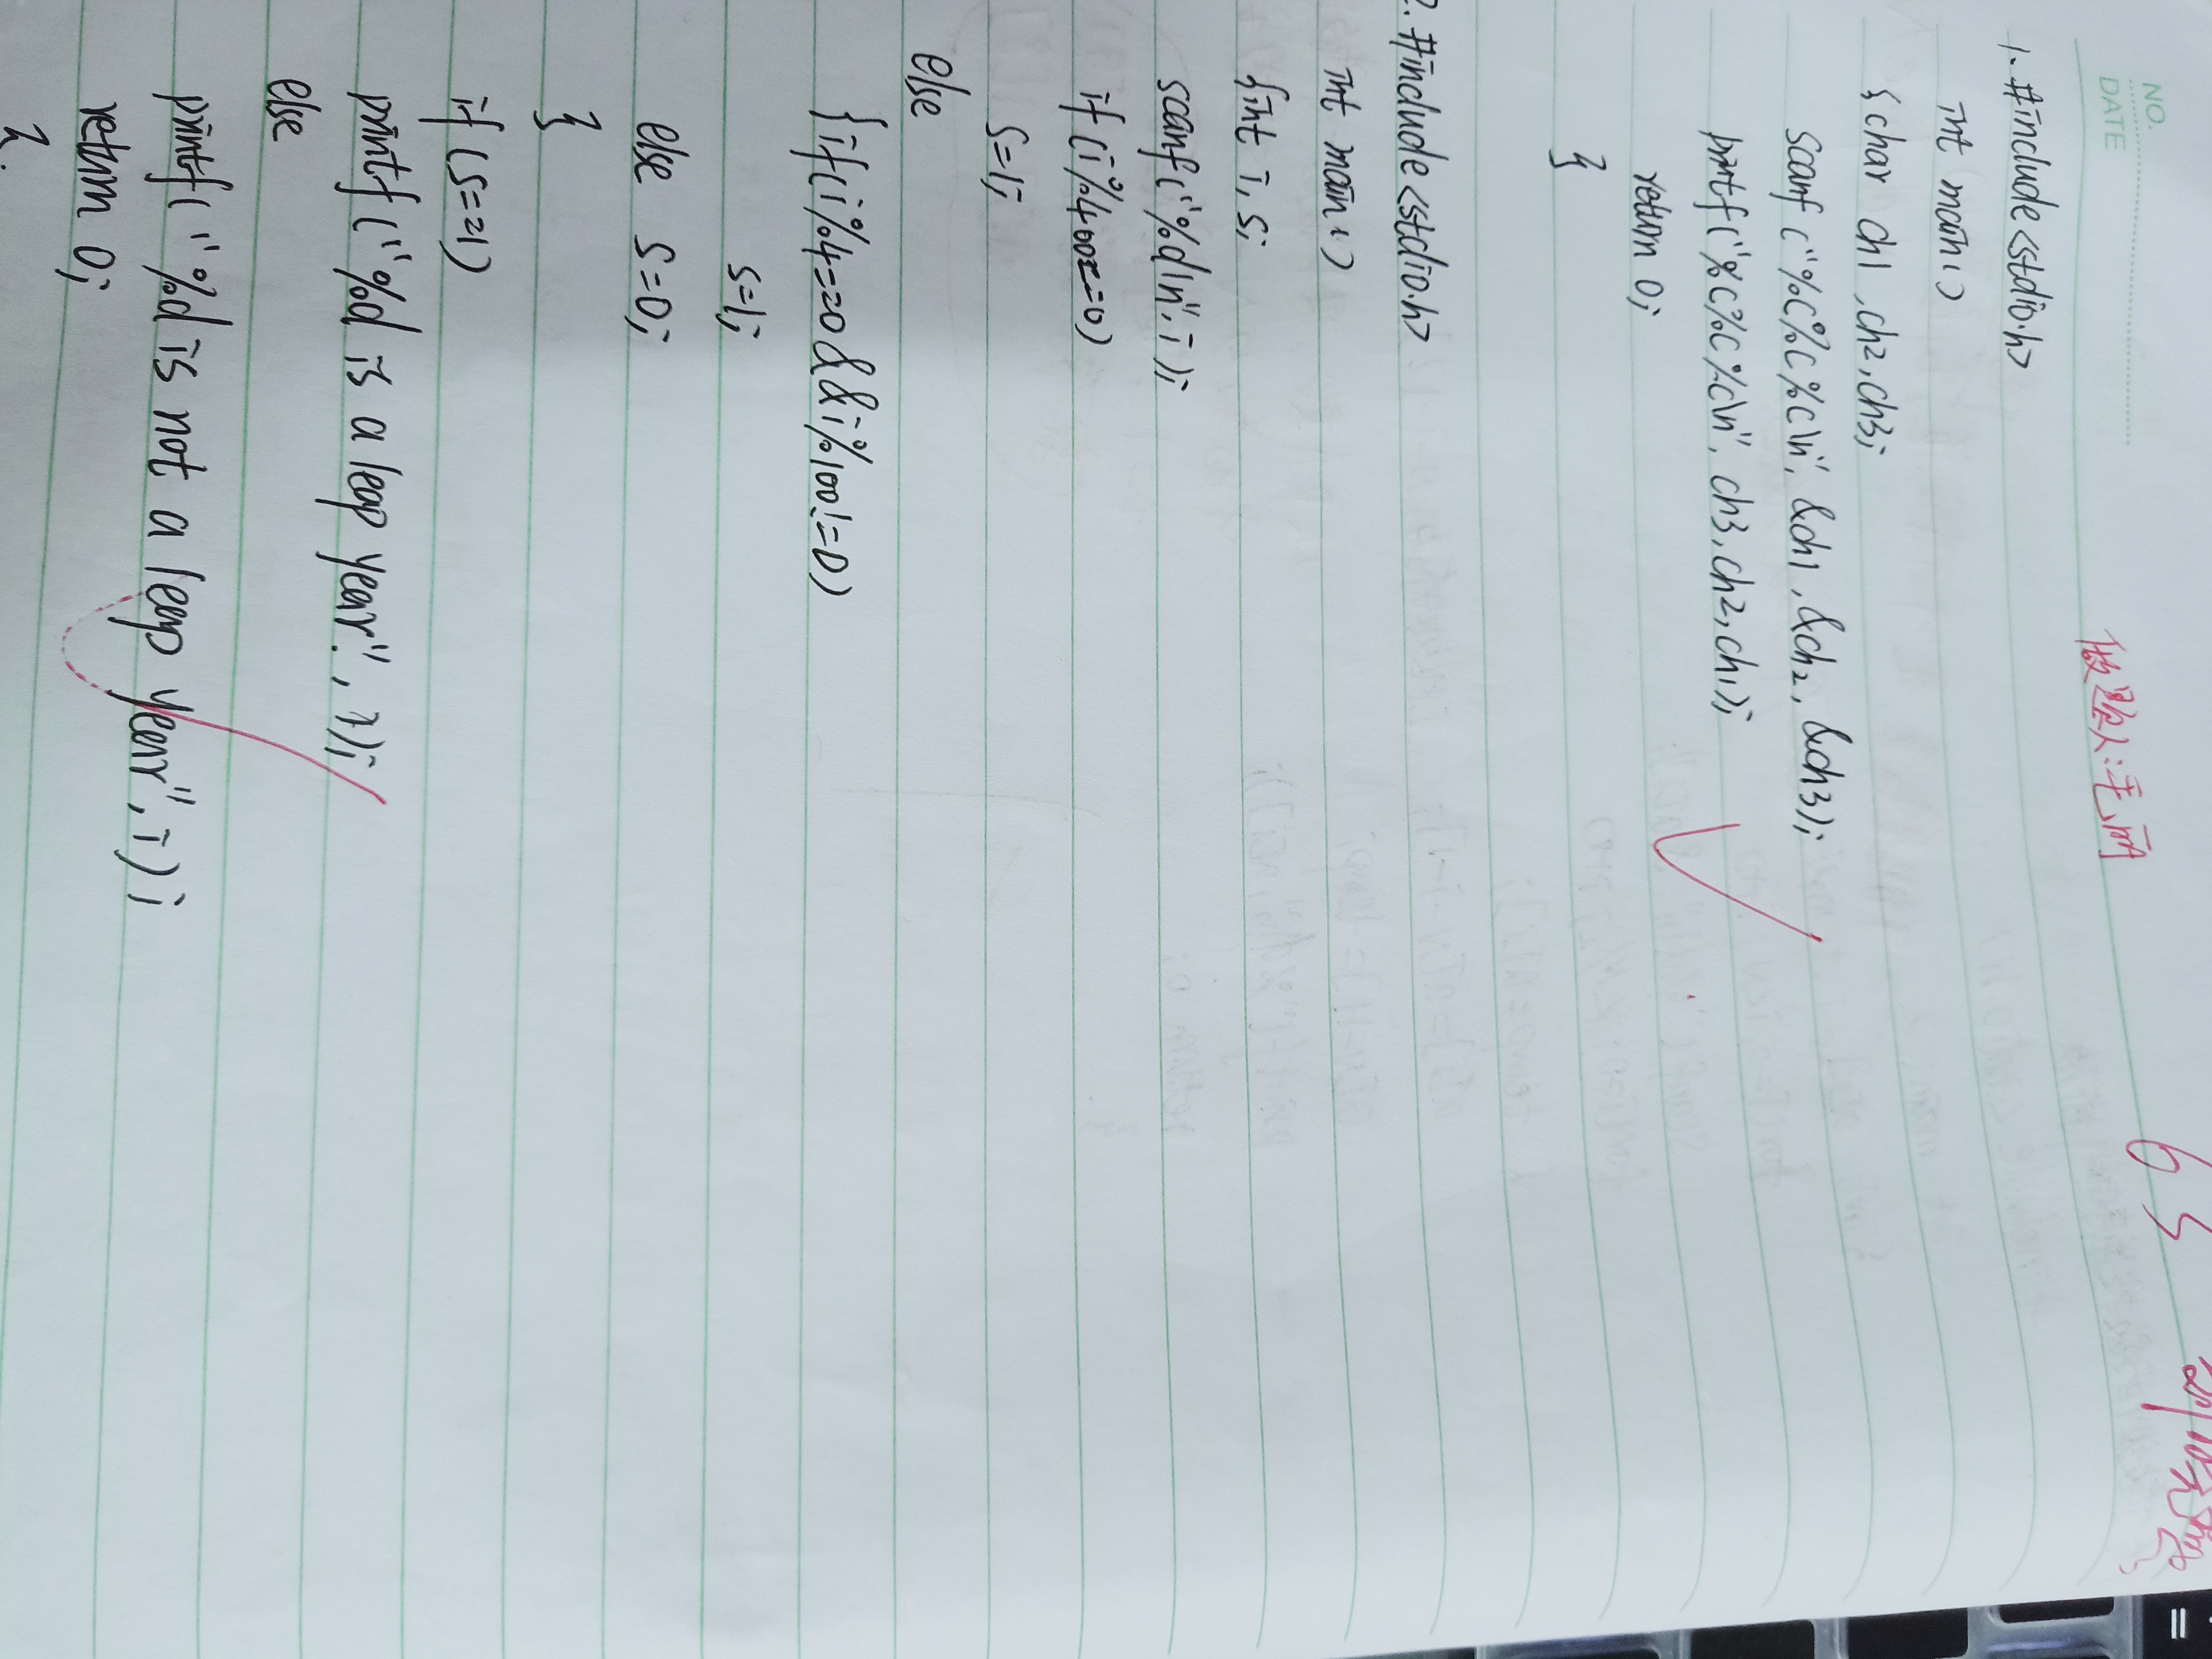 NO.
DATE
做题人:毛雨
65
1. #include<stdio.h>
int main()
{ char ch1,ch2,ch3;
scanf("%c%c%c\n", &ch1,&ch2,&ch3);
printf("%c%c%c\n", ch3,ch2,ch1);
return 0;
}
2. #include<stdio.h>
int main()
{int i,s;
scanf("%d\n",i);
if(i%400==0)
s=1;
else
{if(i%4==0&&i%100!=0)
s=1;
else s=0;
}
if(s==1)
printf("%d is a leap year.",i);
else
printf("%d is not a leap year",i);
return 0;
}.
=